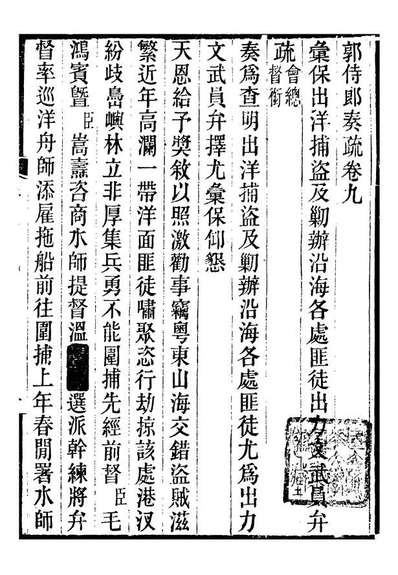 郭侍郎奏疏卷九
彙保出洋捕盜及剿辦沿海各處匪徒出力文武員弁
疏會總督銜
奏為查明出洋捕盜及剿辦沿海各處匪徒尤為出力
文武員弁擇尤彙保仰懇
天恩給予獎敘以照激勸事竊粵東山海交錯盜賊滋
繁近年高瀾一帶洋面匪徒嘯聚恣行劫掠該處港汊
紛歧島嶼林立非厚集兵勇不能圍捕先經前督臣毛
鴻賓暨臣嵩燾咨商水師提督溫選派幹練將弁
督率巡洋舟師添雇拖船前往圍捕上年春閒署水師